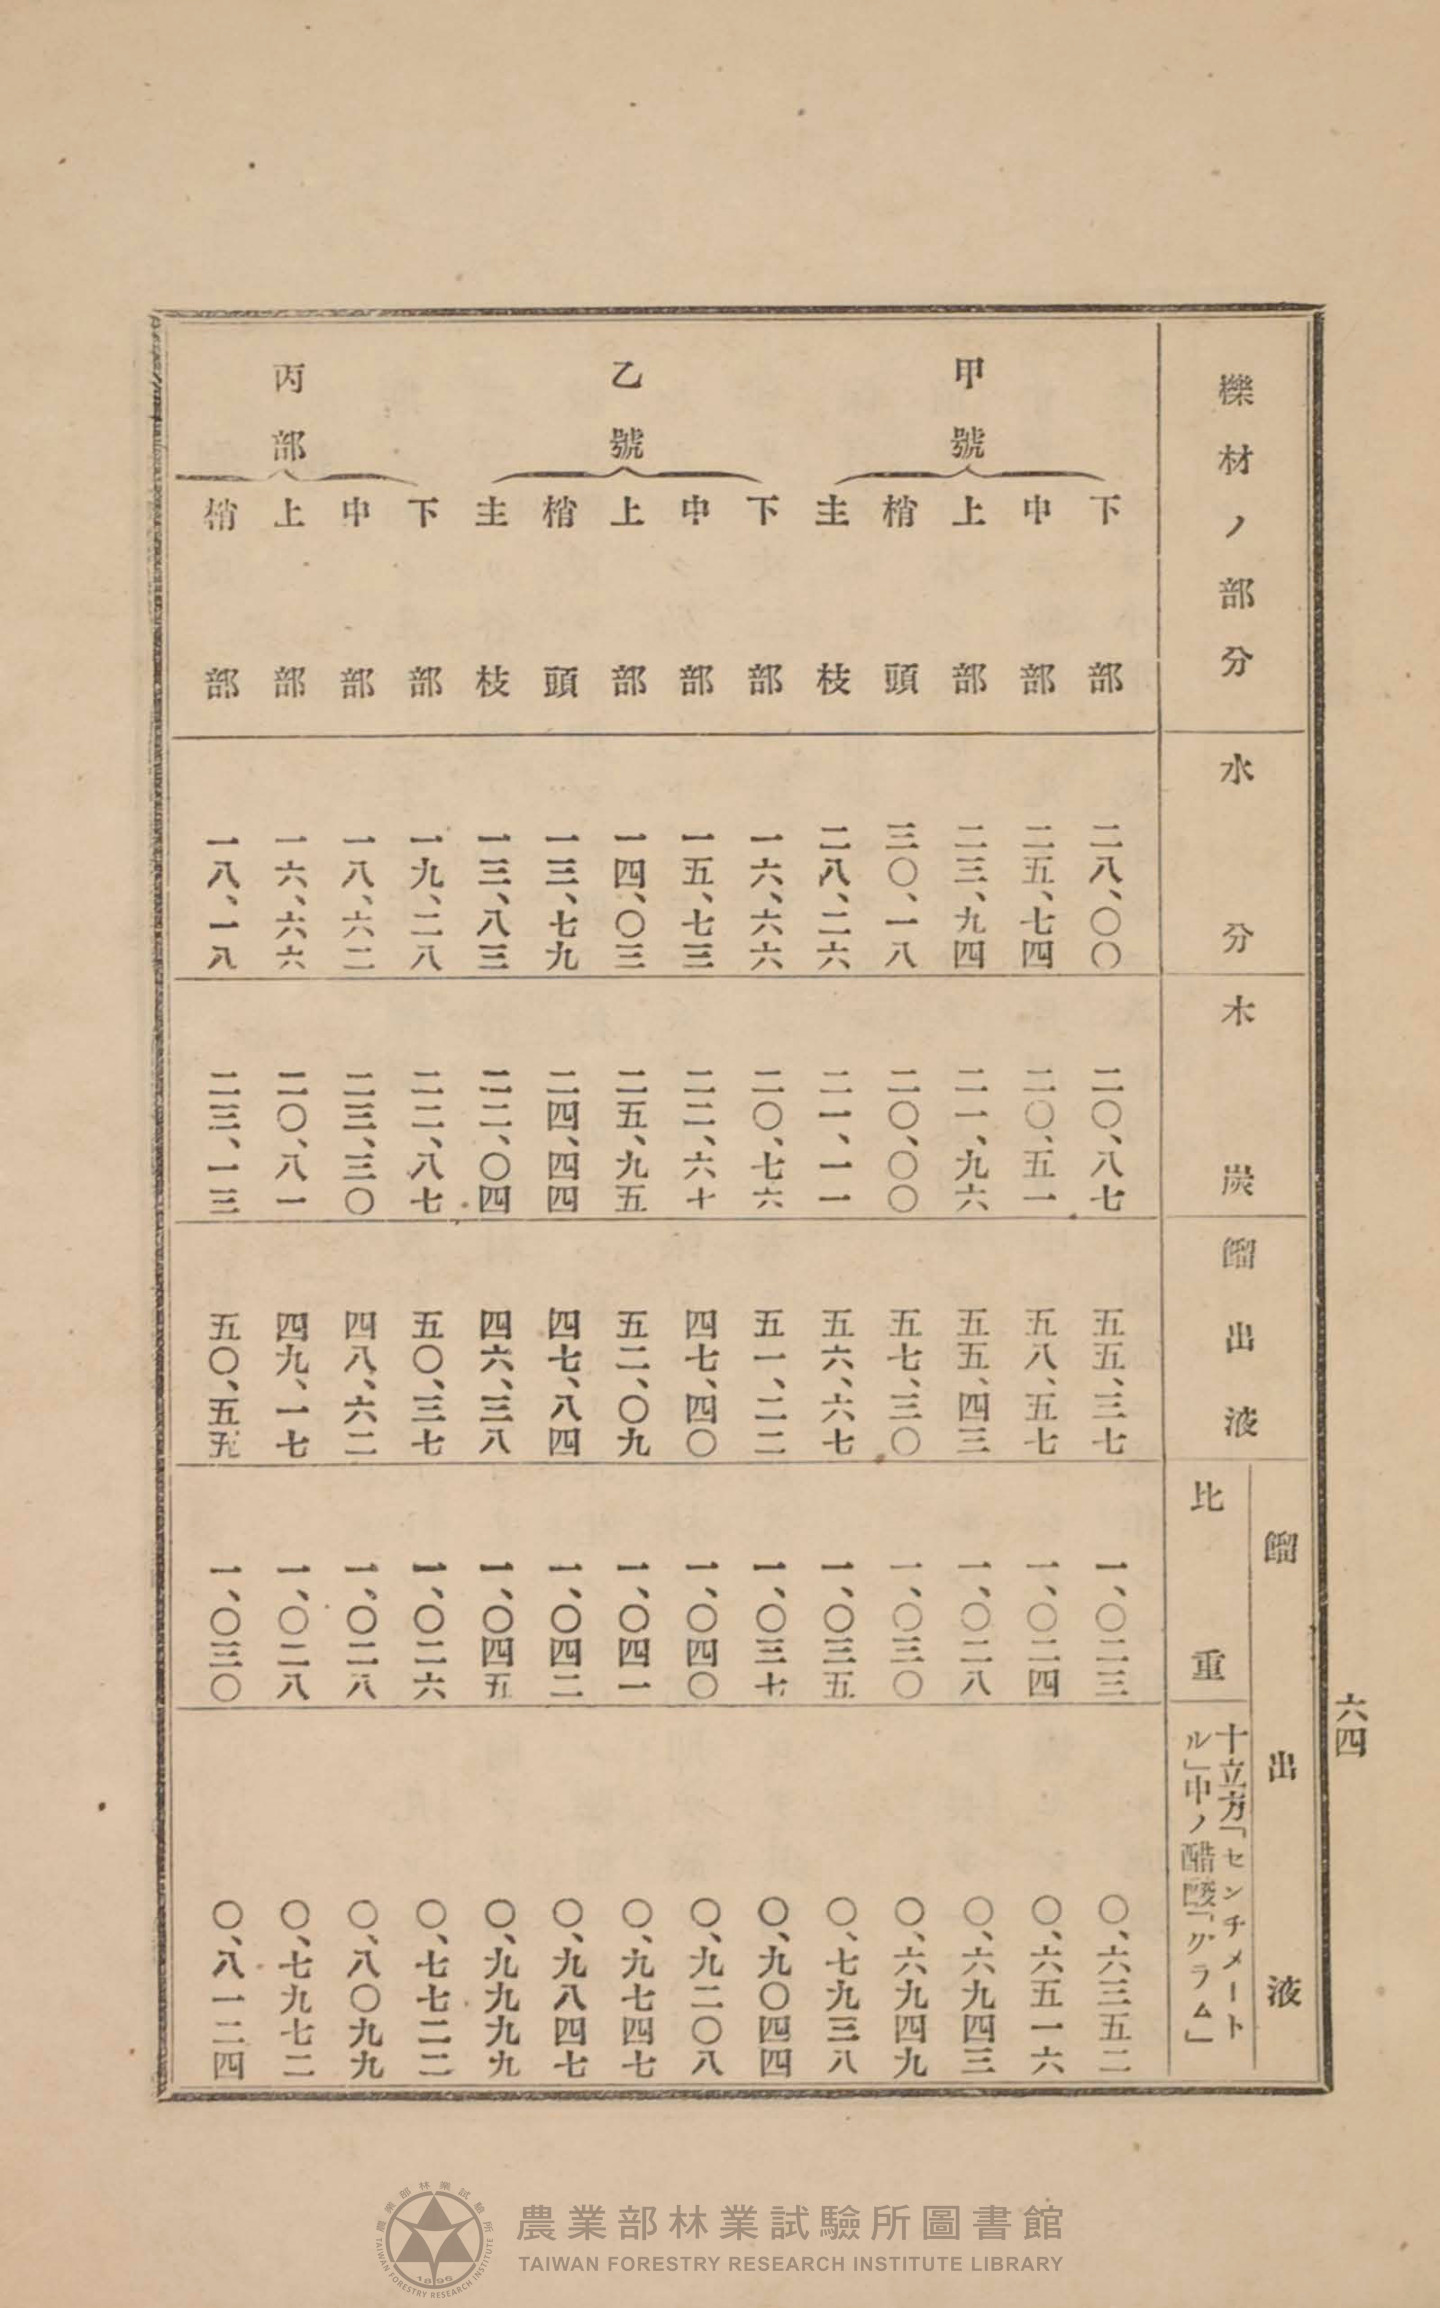 六四
櫟材ノ部分 水分 木炭 餾出液 餾出液 比重 十立方「センチメートル」中ノ醋酸「グラム」
甲號 下部 二八、〇〇 二〇、八七 五五、三七 一、〇二三 〇、六三五二
中部 二五、七四 二〇、五一 五八、五七 一、〇二四 〇、六五一六
上部 二三、九四 二一、九六 五五、四三 一、〇二八 〇、六九四三
梢頭 三〇、一八 二〇、〇〇 五七、三〇 一、〇三〇 〇、六九四九
主枝 二八、二六 二一、一一 五六、六七 一、〇三五 〇、七九三八
乙號 下部 一六、六六 二〇、七六 五一、二二 一、〇三七 〇、九〇四四
中部 一五、七三 二二、六十 四七、四〇 一、〇四〇 〇、九二〇八
上部 一四、〇三 二五、九五 五二、〇九 一、〇四一 〇、九七四七
梢頭 一三、七九 二四、四四 四七、八四 一、〇四二 〇、九八四七
主枝 一三、八三 二二、〇四 四六、三八 一、〇四五 〇、九九九九
丙部 下部 一九、二八 二二、八七 五〇、三七 一、〇二六 〇、七七二二
中部 一八、六二 二三、三〇 四八、六二 一、〇二八 〇、八〇九九
上部 一六、六六 二〇、八一 四九、一七 一、〇二八 〇、七九七二
梢部 一八、一八 二三、一三 五〇、五五 一、〇三〇 〇、八一二四
農業部林業試驗所圖書館
TAIWAN FORESTRY RESEARCH INSTITUTE LIBRARY
農業部林業試驗所
TAIWAN FORESTRY RESEARCH INSTITUTE
1896